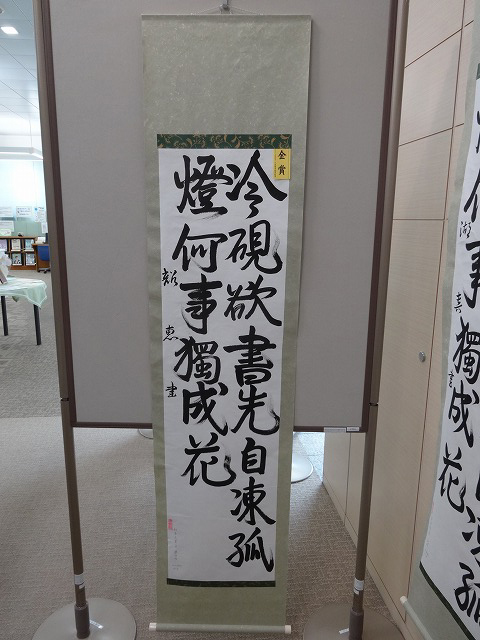 金賞
冷硯欲書先自凍孤
燈何事獨成花
恵書
何事獨成花